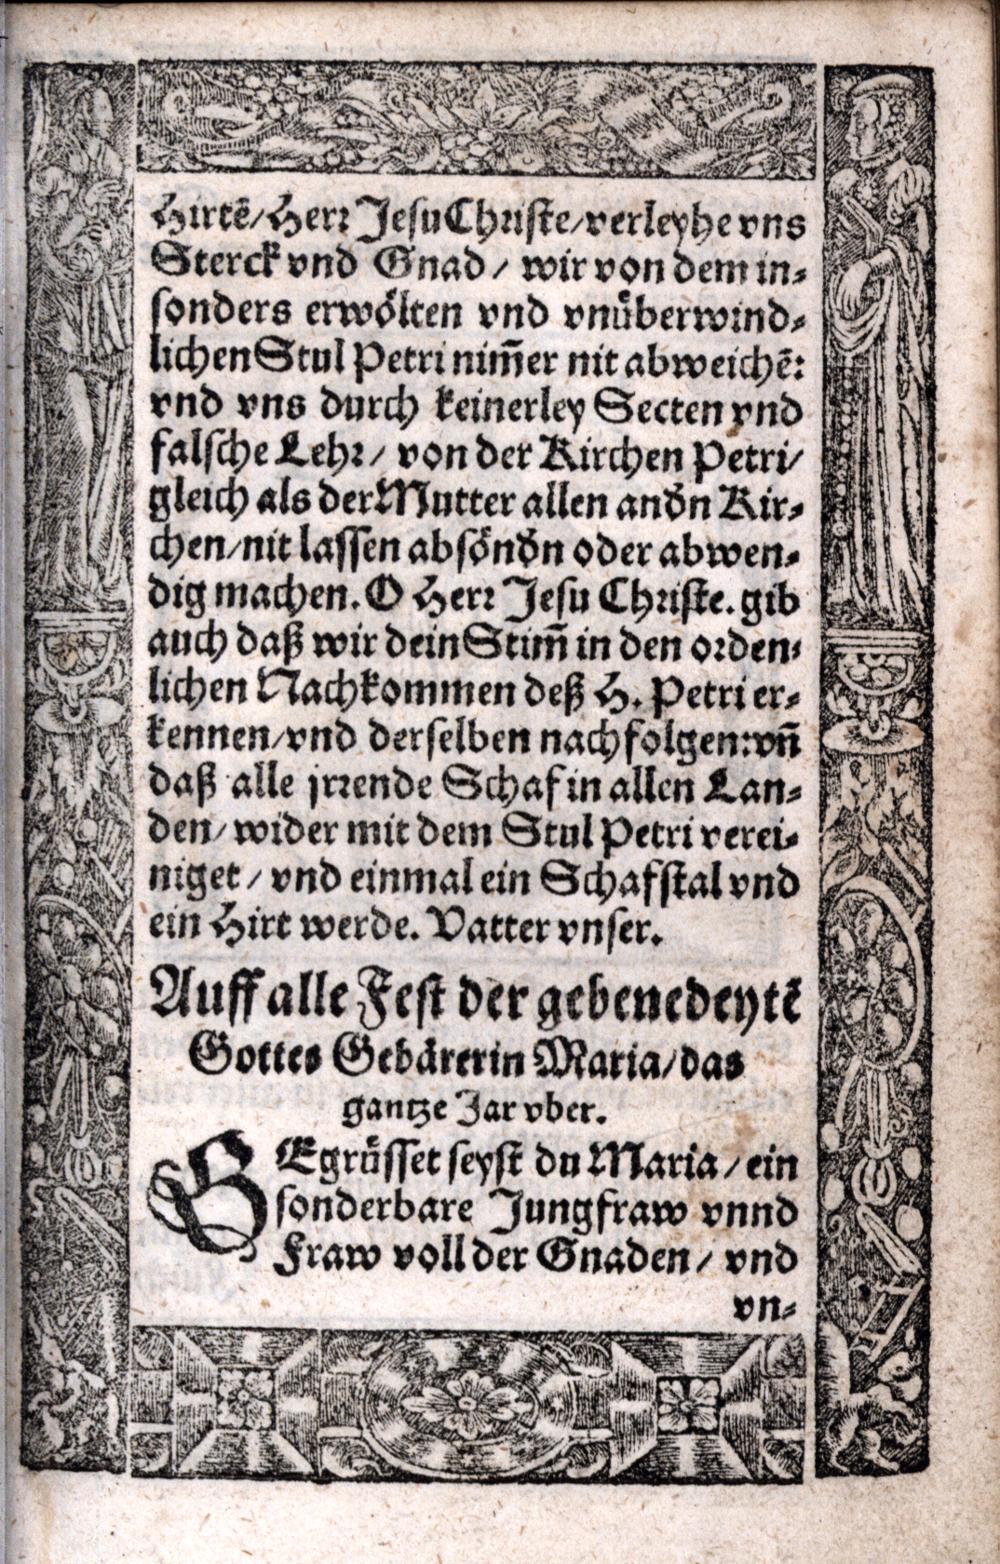 Hirtẽ/Herr Jesu Christe/verleyhe vns
Sterck vnd Gnad/ wir von dem in-
sonders erwoͤlten vnd vnuͤberwind-
lichen Stul Petri nim̃er nit abweichẽ:
vnd vns durch keinerley Secten vnd
falsche Lehr/ von der Kirchen Petri/
gleich als der Mutter allen andn̄ Kir-
chen/nit lassen absoͤndn̄ oder abwen-
dig machen. O Herr Jesu Christe. gib
auch daß wir dein Stim̃ in den orden-
lichen Nachkommen deß H. Petri er-
kennen/vnd derselben nachfolgen:vñ
daß alle jrrende Schaf in allen Lan-
den/ wider mit dem Stul Petri verei-
niget/ vnd einmal ein Schafstal vnd
ein Hirt werde. Vatter vnser.
Auff alle Fest der gebenedeytẽ
Gottes Gebaͤrerin Maria/das
gantze Jar vber.
GEgruͤsset seyst du Maria/ein
sonderbare Jungfraw vnnd
Fraw voll der Gnaden/ vnd
vn-